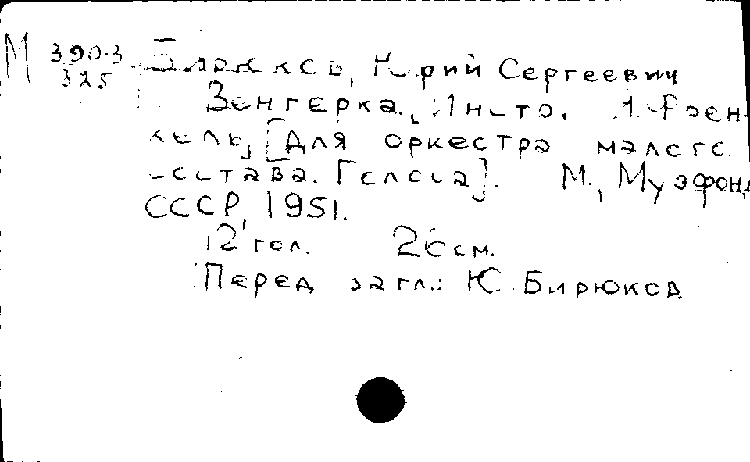 М 3903/325 Бирюков, Юрий Сергеевич
Венгерка. Инстр. Я. Френ-
кель, [Для оркестра малого
состава. Голоса]. М., Музфонд
СССР, 1951.
12 гол. 26 см.
Перед загл.: Ю. Бирюков